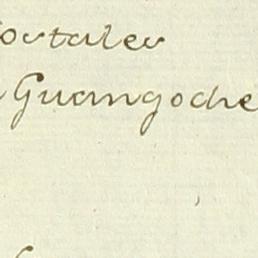 ortales
Guangoche